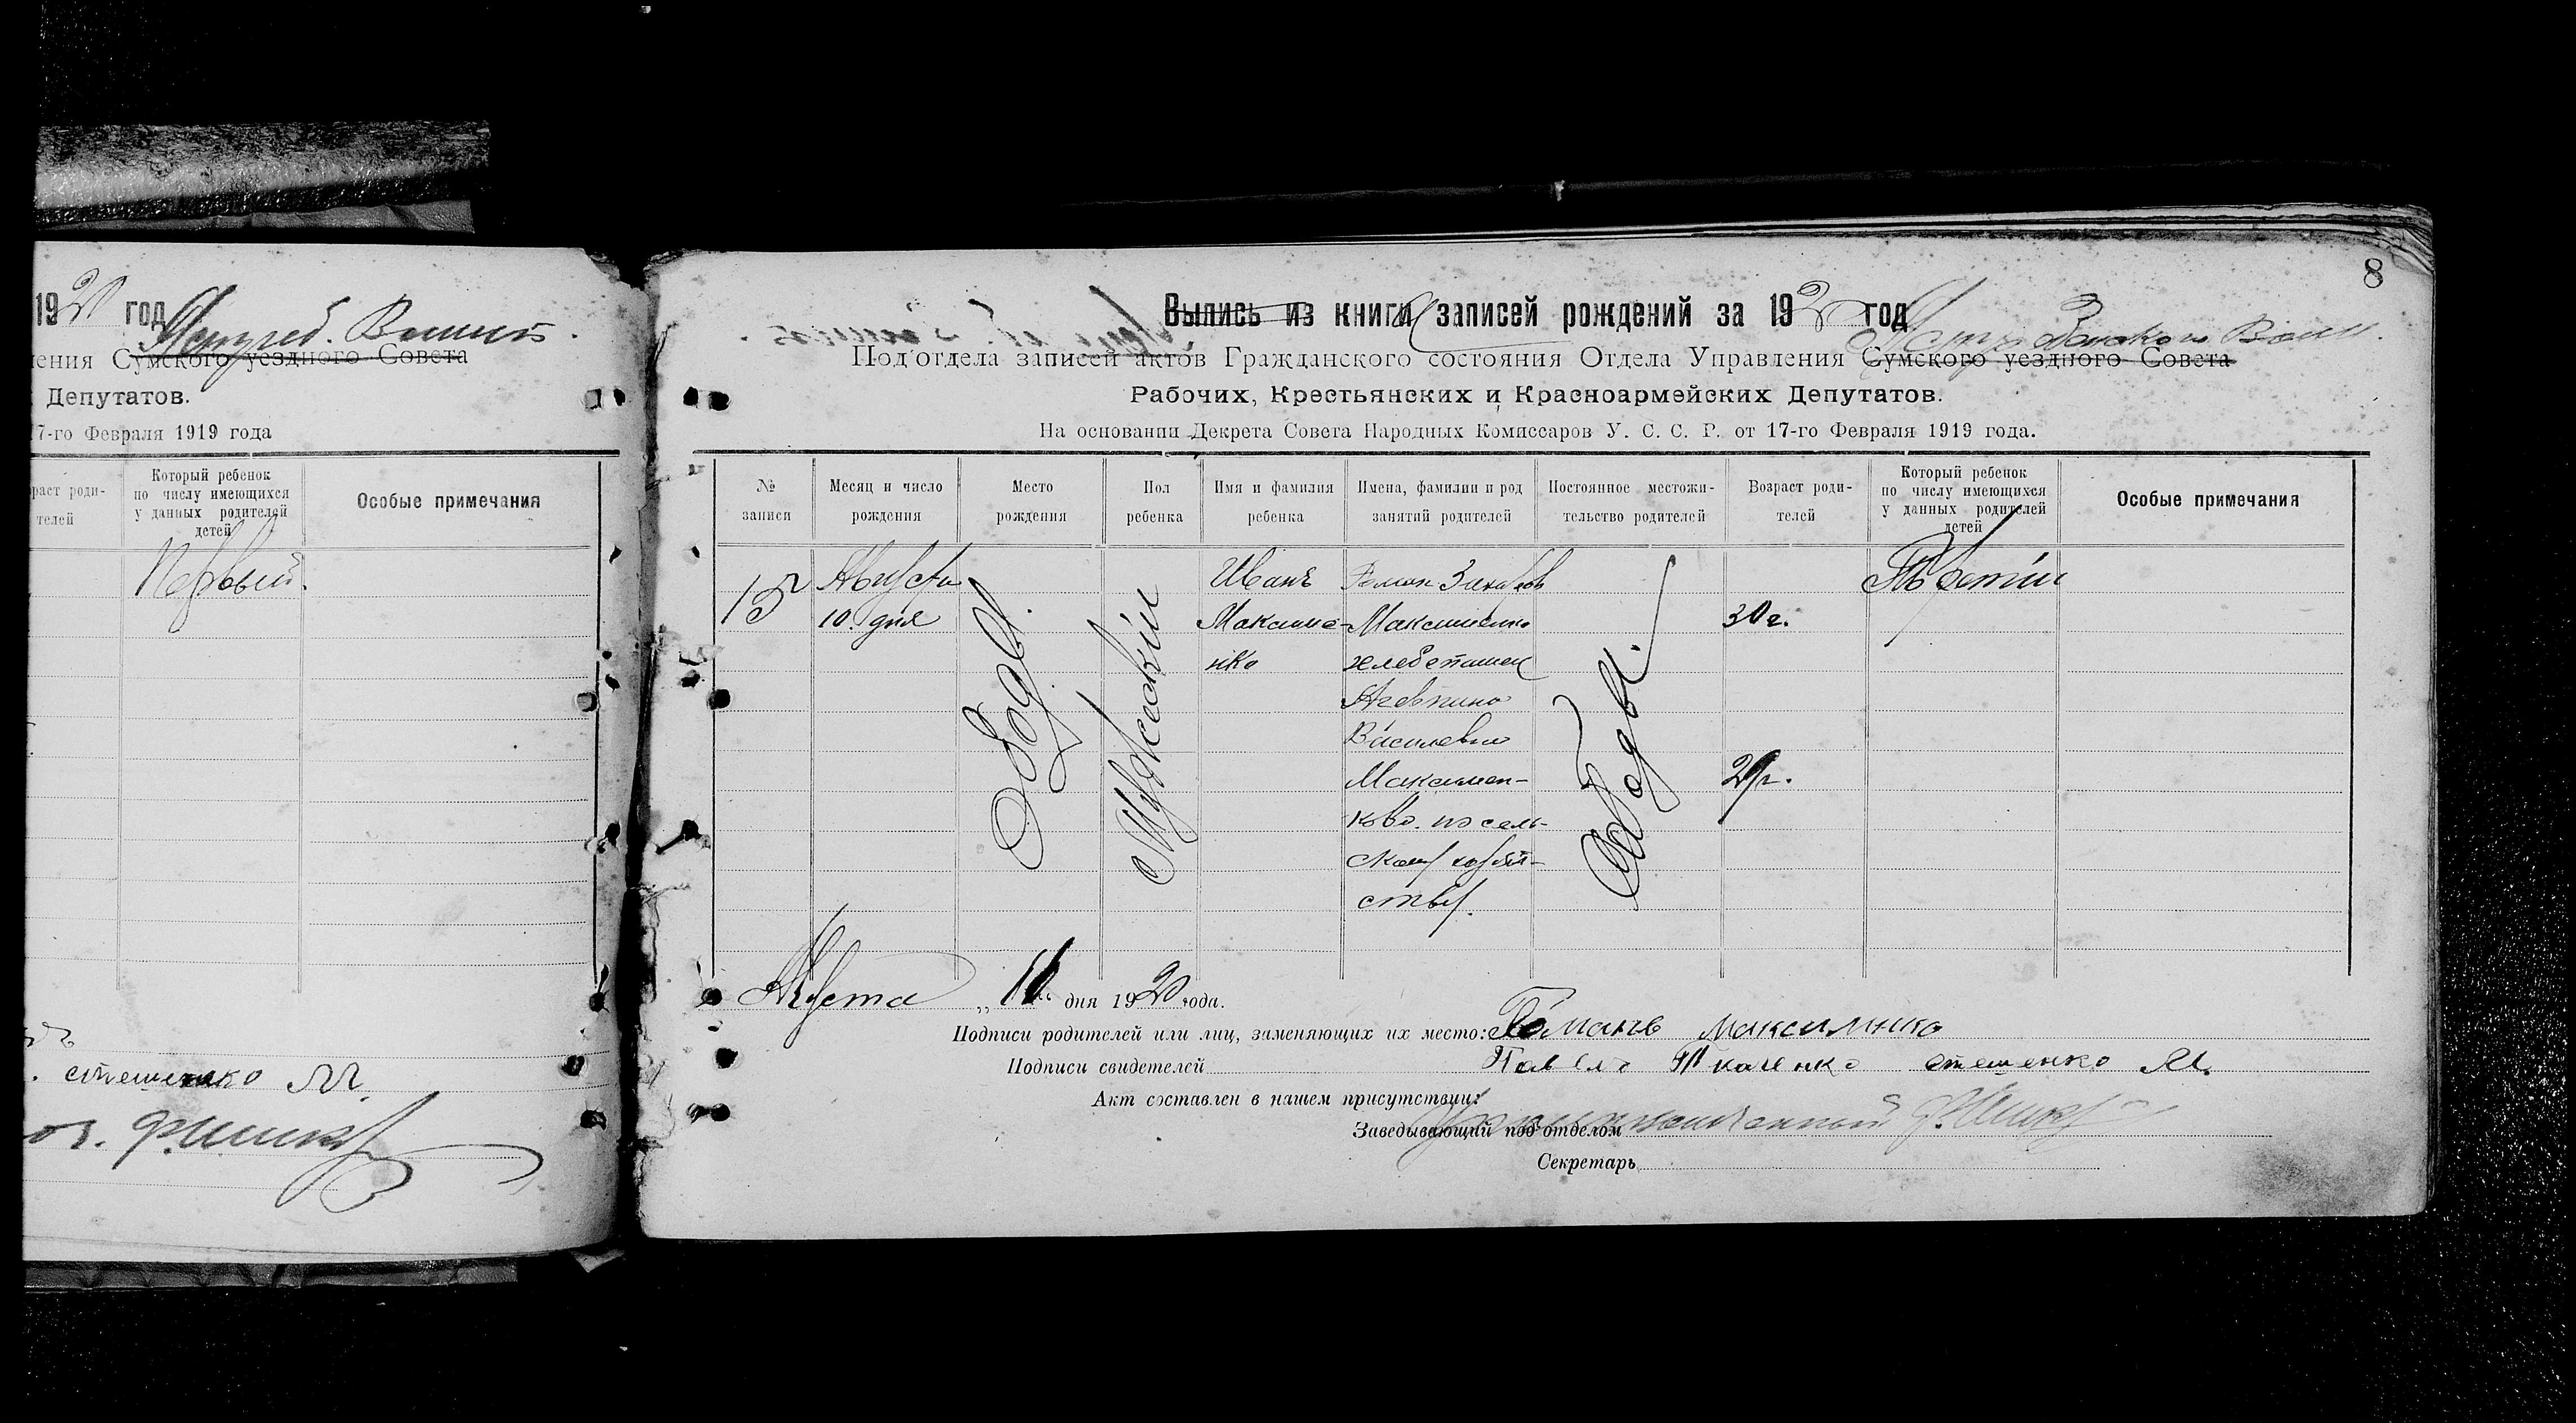 1920 год
Сумского уездного Совета
Депутатов.
17-го Февраля 1919 года
Который ребенок
по числу имеющихся
у данных родителей
детей
Особые примечания
Первый.
стешенко М.
8
Выпись из книги записей рождений за 1920 год
Под'отдела записей актов Гражданского состояния Отдела Управления Сумского уездного Совета
Рабочих, Крестьянских и Красноармейских Депутатов.
На основании Декрета Совета Народных Комиссаров У. С. С. Р. от 17-го Февраля 1919 года.
№
записи
Месяц и число
рождения
Место
рождения
Пол
ребенка
Имя и фамилия
ребенка
Имена, фамилии и род
занятий родителей
Постоянное местожи-
тельство родителей
Возраст роди-
телей
Который ребенок
по числу имеющихся
у данных родителей
детей
Особые примечания
15
Августа
10. дня
Мужеский
Иванъ
Максиме-
нко
Роман Захаров
Максименко
хлебопашец
Василевна
Максимен-
кова. по сель-
скому хозяй-
ству.
30 г.
29 г.
Третій
Августа „11 дня 1920 года.
Подписи родителей или лиц, заменяющих их место: Романъ Максимнко
Подписи свидетелей Павело Ткаченко стешенко М.
Акт составлен в нашем присутствии:
Заведывающий под'отделом
Секретарь